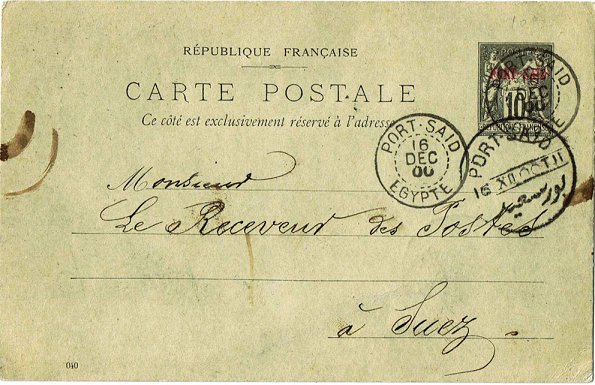 RÉPUBLIQUE FRANÇAISE
CARTE POSTALE
Ce côté est exclusivement réservé à l'adresse
PORT-SAID
10
PORT-SAID
DEC
00
PORT-SAID
16
DEC
00
EGYPTE
PORT-SAID
16 XII 00 T II
بور سعيد
Monsieur
Le Receveur des Postes
à Suez
040